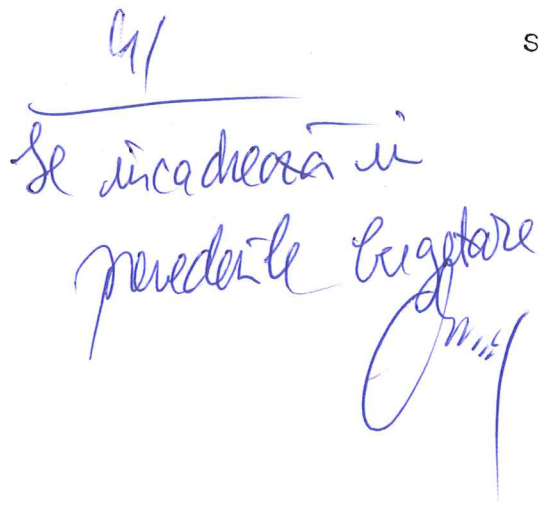 Se încadrează în
prevederile bugetare